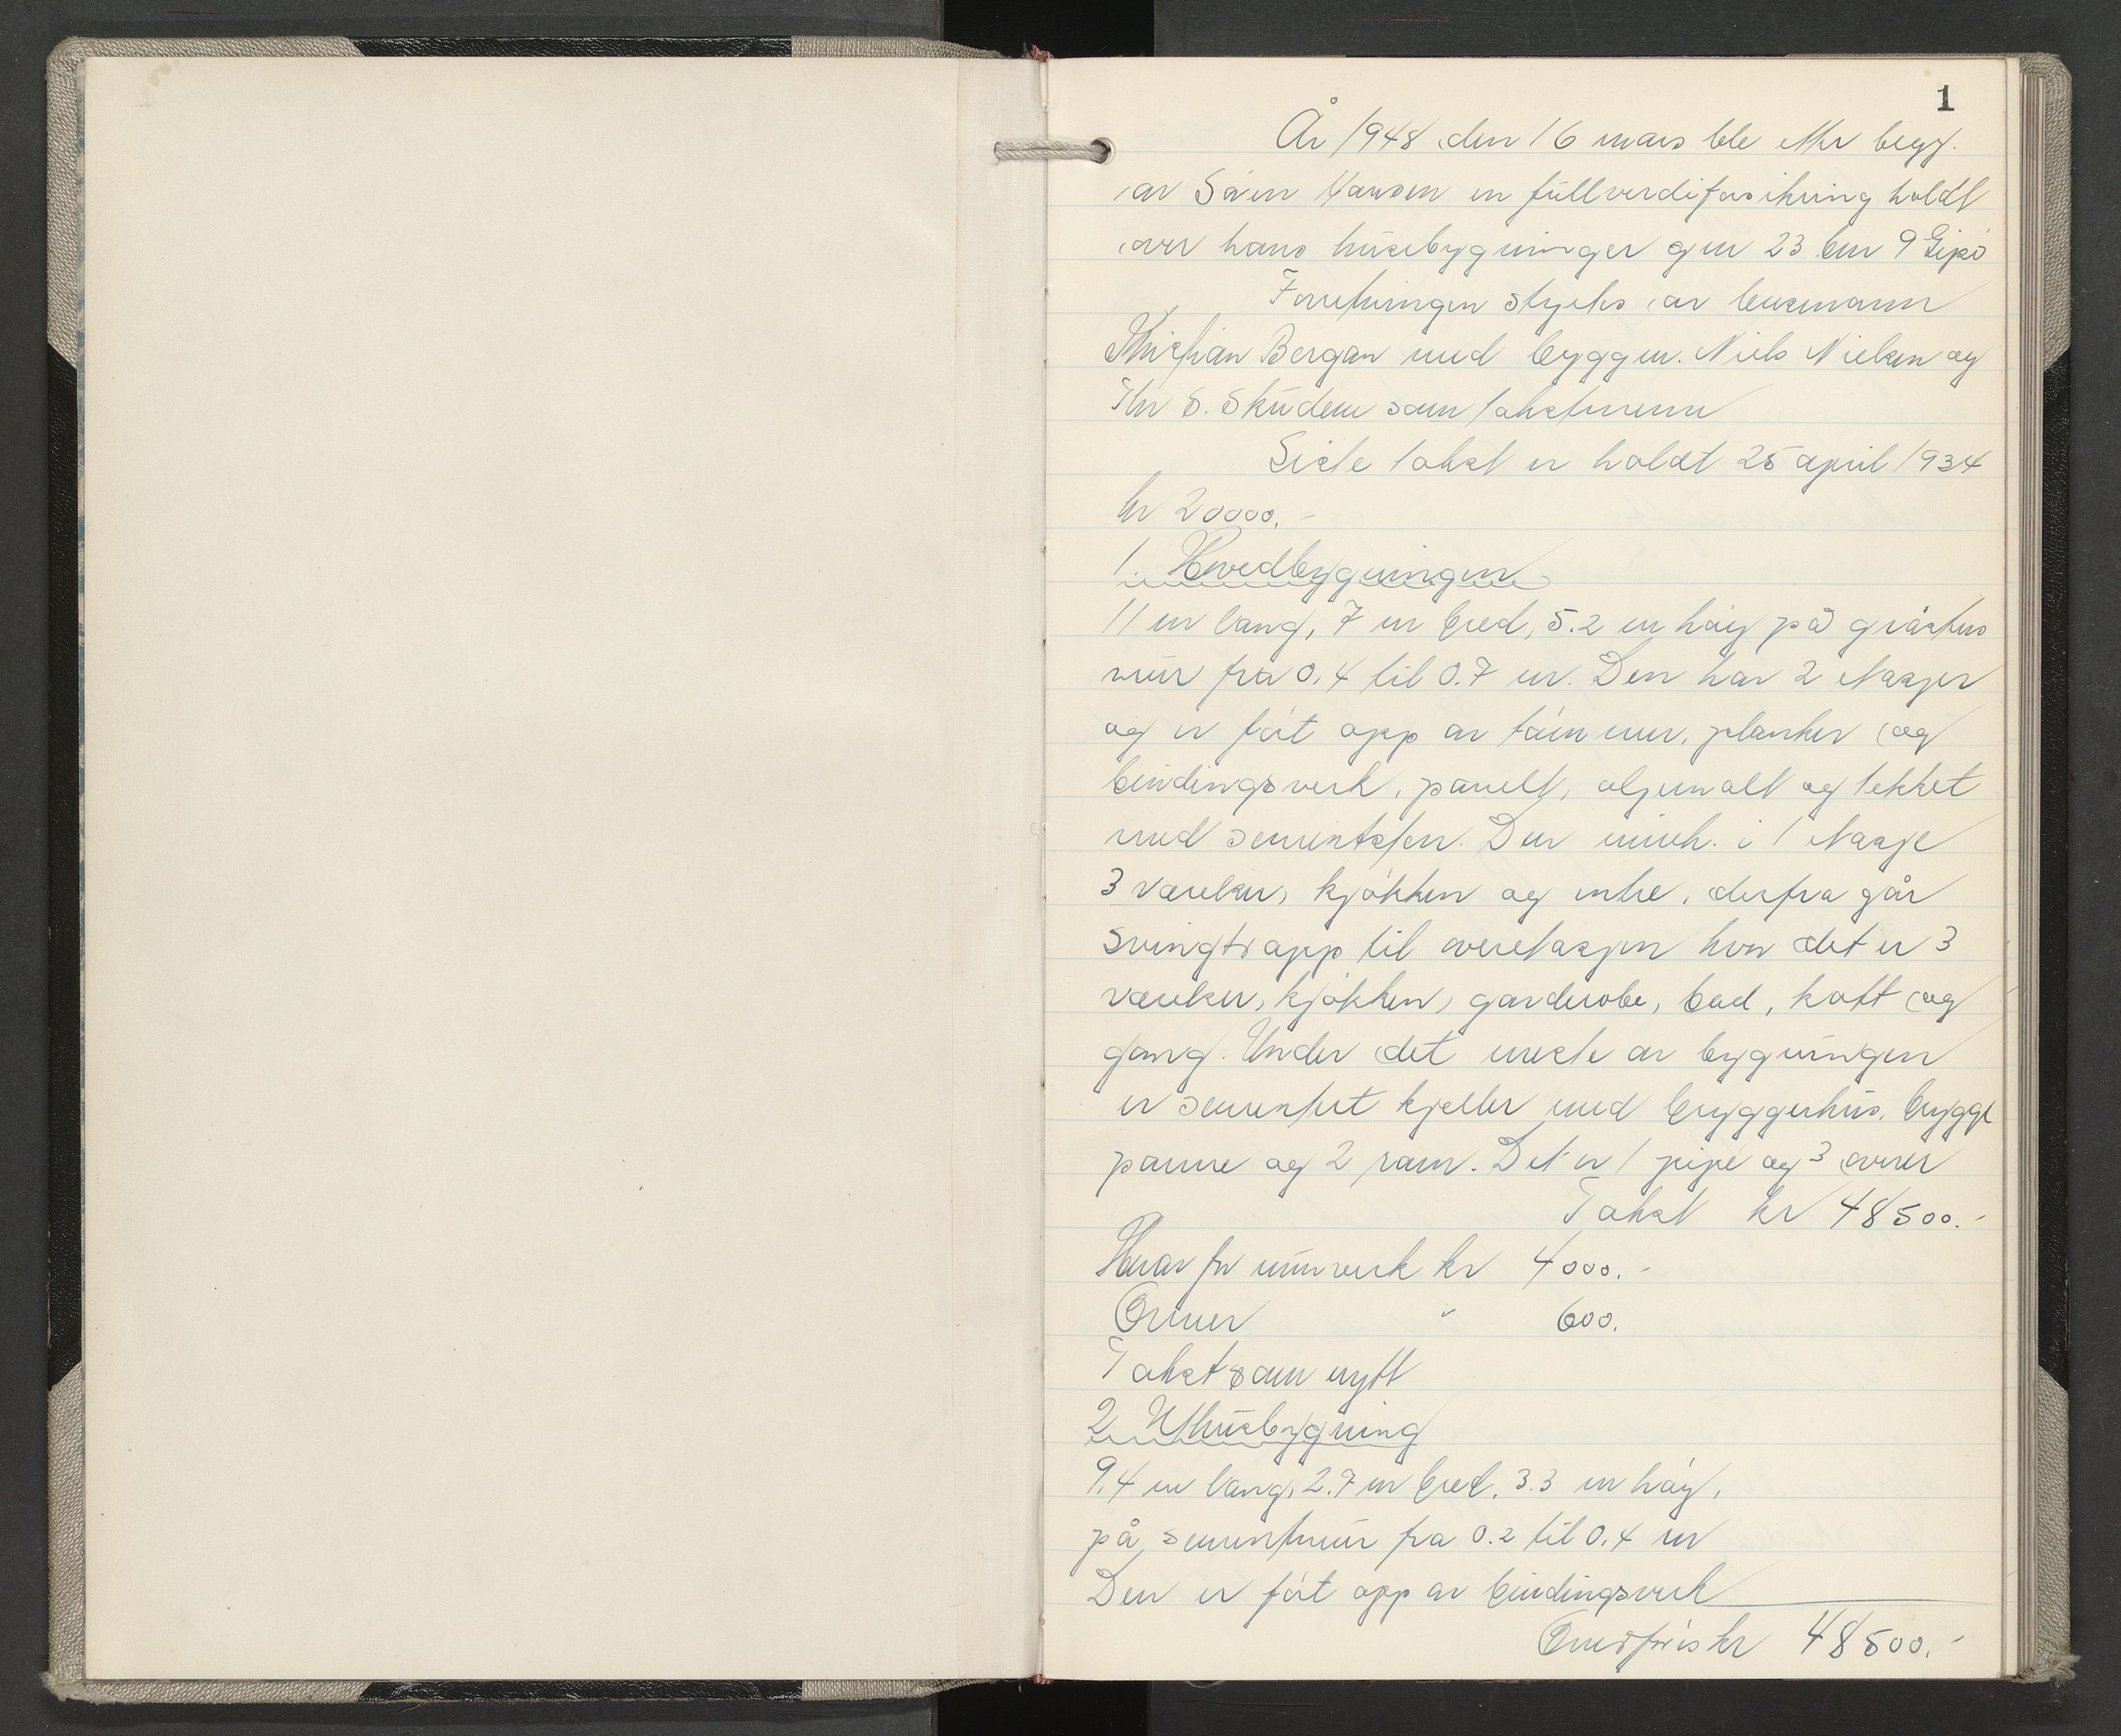 1
År 1948 den 16 mars ble etter begj.
av Søren Hansen en fullverdiforsikring holdt
over hans husebygninger gnr 23 bnr 9 Gipø
Forretningen styrtes av lensmann
Kristian Bergan med byggm. Niels Nielsen og
Thv S. Skudem som takstmenn
Siste takst er holdt 25 april 1934
kr 20000.-
1. Hovedbygningen
11 m lang, 7 m bred, 5.2 m høg på gråstens
mur fra 0.4 til 0.7 m. Den har 2 etasjer
og er ført opp av tømmer, planker og
bindingsverk, panelt, oljemalt og tekket
med sementsten. Den inneh. i 1 etasje
3 værelser, kjøkken og entre, derfra går
svingtrapp til overetasjen hvor det er 3
værelser, kjøkken, garderobe, bad, kott og
gang. Under det meste av bygningen
er sementert kjeller med bryggerhus, brygge
panne og 2 rom. Det er 1 pipe og 3 ovner
Takst kr 48500.-
Herav for murverk kr 4000.-
Ovner " 600.
Takst som nytt
2 Uthusbygning
9.4 m lang, 2.7 m bred, 3.3 m høg,
på sementmur fra 0.2 til 0.4 m
Den er ført opp av bindingsverk
Overføres kr 48500.-